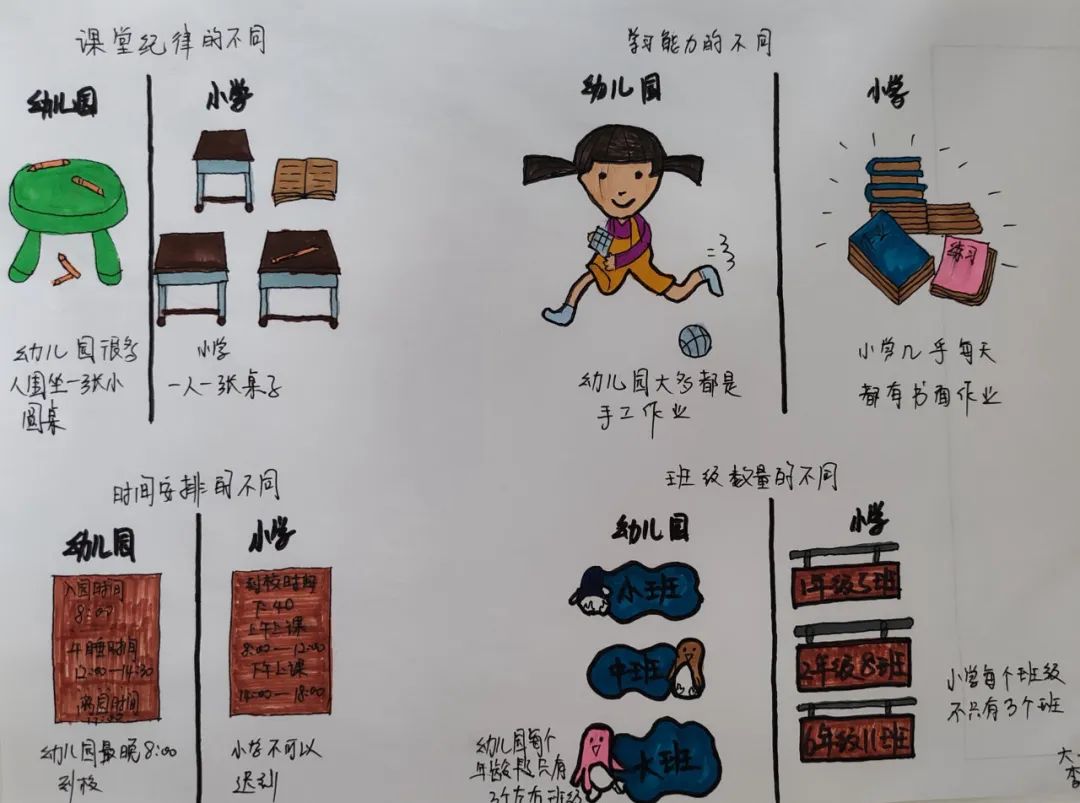 课堂纪律的不同
幼儿园
小学
幼儿园很多
人围坐一张小
圆桌
小学
一人一张桌子
学习能力的不同
幼儿园
小学
练习
幼儿园大多都是
手工作业
小学几乎每天
都有书面作业
时间安排的不同
幼儿园
小学
入园时间
8:00
午睡时间
12:00—14:30
离园时间
到校时间
7:40
上午上课
8:00—12:00
下午上课
14:00—18:00
幼儿园最晚8:00
到校
小学不可以
迟到
班级数量的不同
幼儿园
小学
小班
中班
大班
幼儿园每个
年龄段只有
3个左右班级
1年级5班
2年级8班
6年级11班
小学每个班级
不只有3个班
大
李